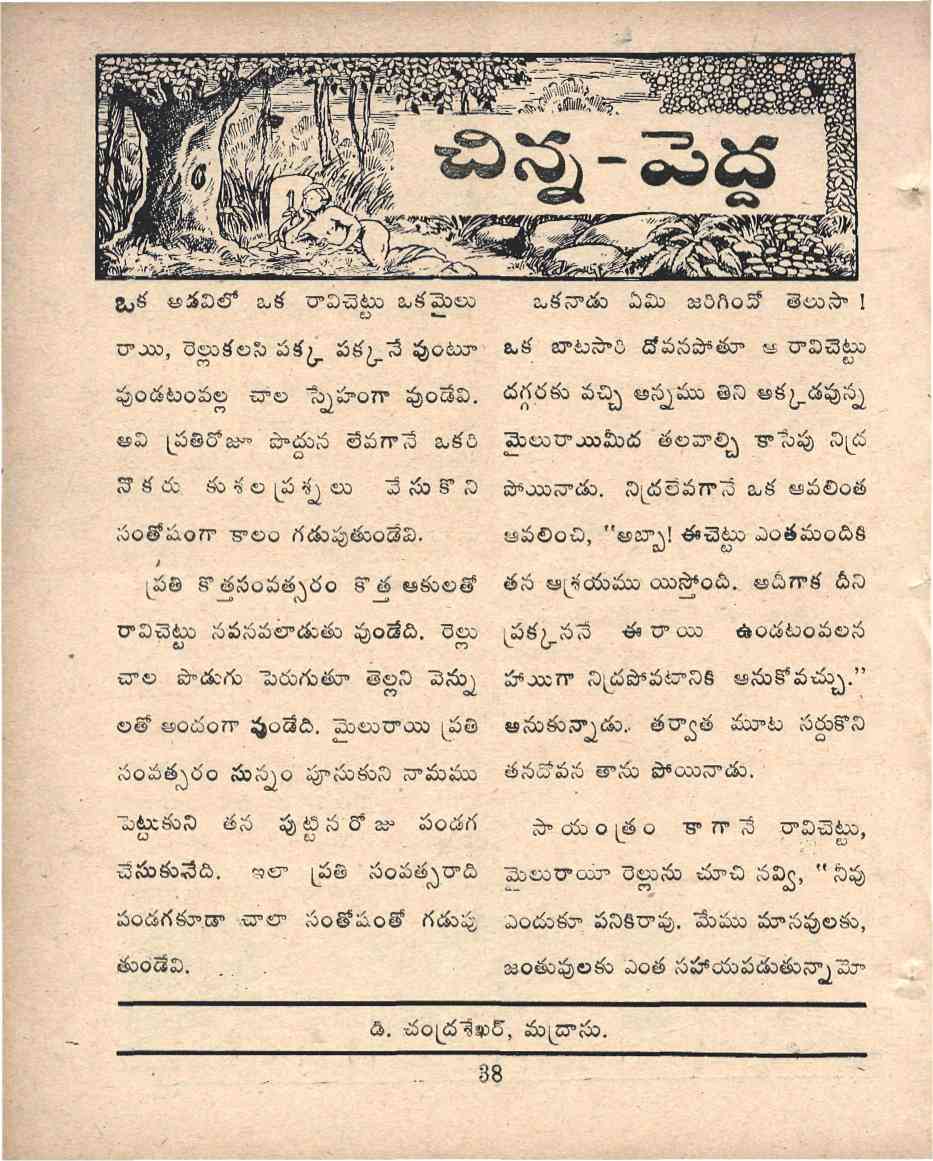 చిన్న - పెద్ద
ఒక అడవిలో ఒక రావిచెట్టు ఒకమైలు
రాయి, రెల్లుకలసి పక్క పక్కనే వుంటూ
వుండటంవల్ల చాల స్నేహంగా వుండేవి.
అవి ప్రతిరోజూ పొద్దున లేవగానే ఒకరి
నొకరు కుశలప్రశ్నలు వేసుకొని
సంతోషంగా కాలం గడుపుతుండేవి.
ప్రతి కొత్తసంవత్సరం కొత్త ఆకులతో
రావిచెట్టు నవనవలాడుతు వుండేది. రెల్లు
చాల పొడుగు పెరుగుతూ తెల్లని వెన్ను
లతో అందంగా వుండేది. మైలురాయి ప్రతి
సంవత్సరం సున్నం పూసుకుని నామము
పెట్టుకుని తన పుట్టినరోజు పండగ
చేసుకునేది. ఇలా ప్రతి సంవత్సరాది
పండగకూడా చాలా సంతోషంతో గడుపు
తుండేవి.
ఒకనాడు ఏమి జరిగిందో తెలుసా !
ఒక బాటసారి దోవనపోతూ ఆ రావిచెట్టు
దగ్గరకు వచ్చి అన్నము తిని అక్కడవున్న
మైలురాయిమీద తలవాల్చి కాసేపు నిద్ర
పోయినాడు. నిద్రలేవగానే ఒక ఆవలింత
ఆవలించి, "అబ్బా! ఈచెట్టు ఎంతమందికి
తన ఆశ్రయము యిస్తోంది. అదీగాక దీని
ప్రక్కననే ఈ రాయి ఉండటంవలన
హాయిగా నిద్రపోవటానికి ఆనుకోవచ్చు."
అనుకున్నాడు. తర్వాత మూట సర్దుకొని
తనదోవన తాను పోయినాడు.
సాయంత్రం కాగానే రావిచెట్టు,
మైలురాయీ రెల్లును చూచి నవ్వి, "నీవు
ఎందుకూ పనికిరావు. మేము మానవులకు,
జంతువులకు ఎంత సహాయపడుతున్నామో
డి. చంద్రశేఖర్, మద్రాసు.
38